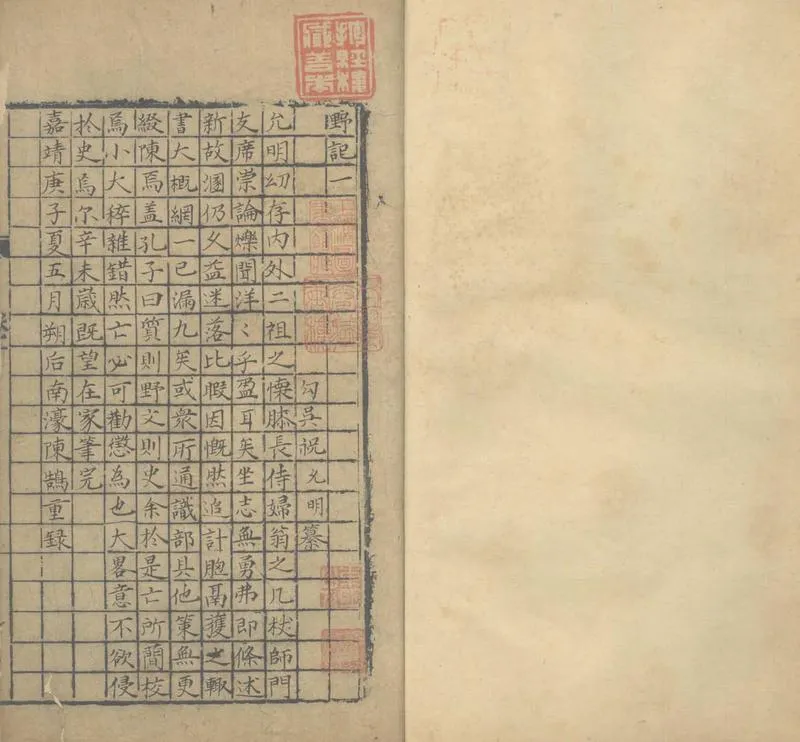 野記一
勾吳祝允明纂
允明幼存内外二祖之懷膝長侍婦翁之几杖師門
友席崇論爍聞洋〻乎盈耳矣坐志無勇弗即條述
新故溷仍久益迷落比暇因慨然追計胞鬲獲之輙
書大概網一已漏九矣或衆所通識部具他策無更
綴陳焉盖孔子曰質則野文則史余扵是亡所簡校
焉小大稡雜錯然亡必可勸懲為也大畧意不欲侵
扵史焉尔辛未歲既望在家筆完
嘉靖庚子夏五月朔后南濠陳鵠重録